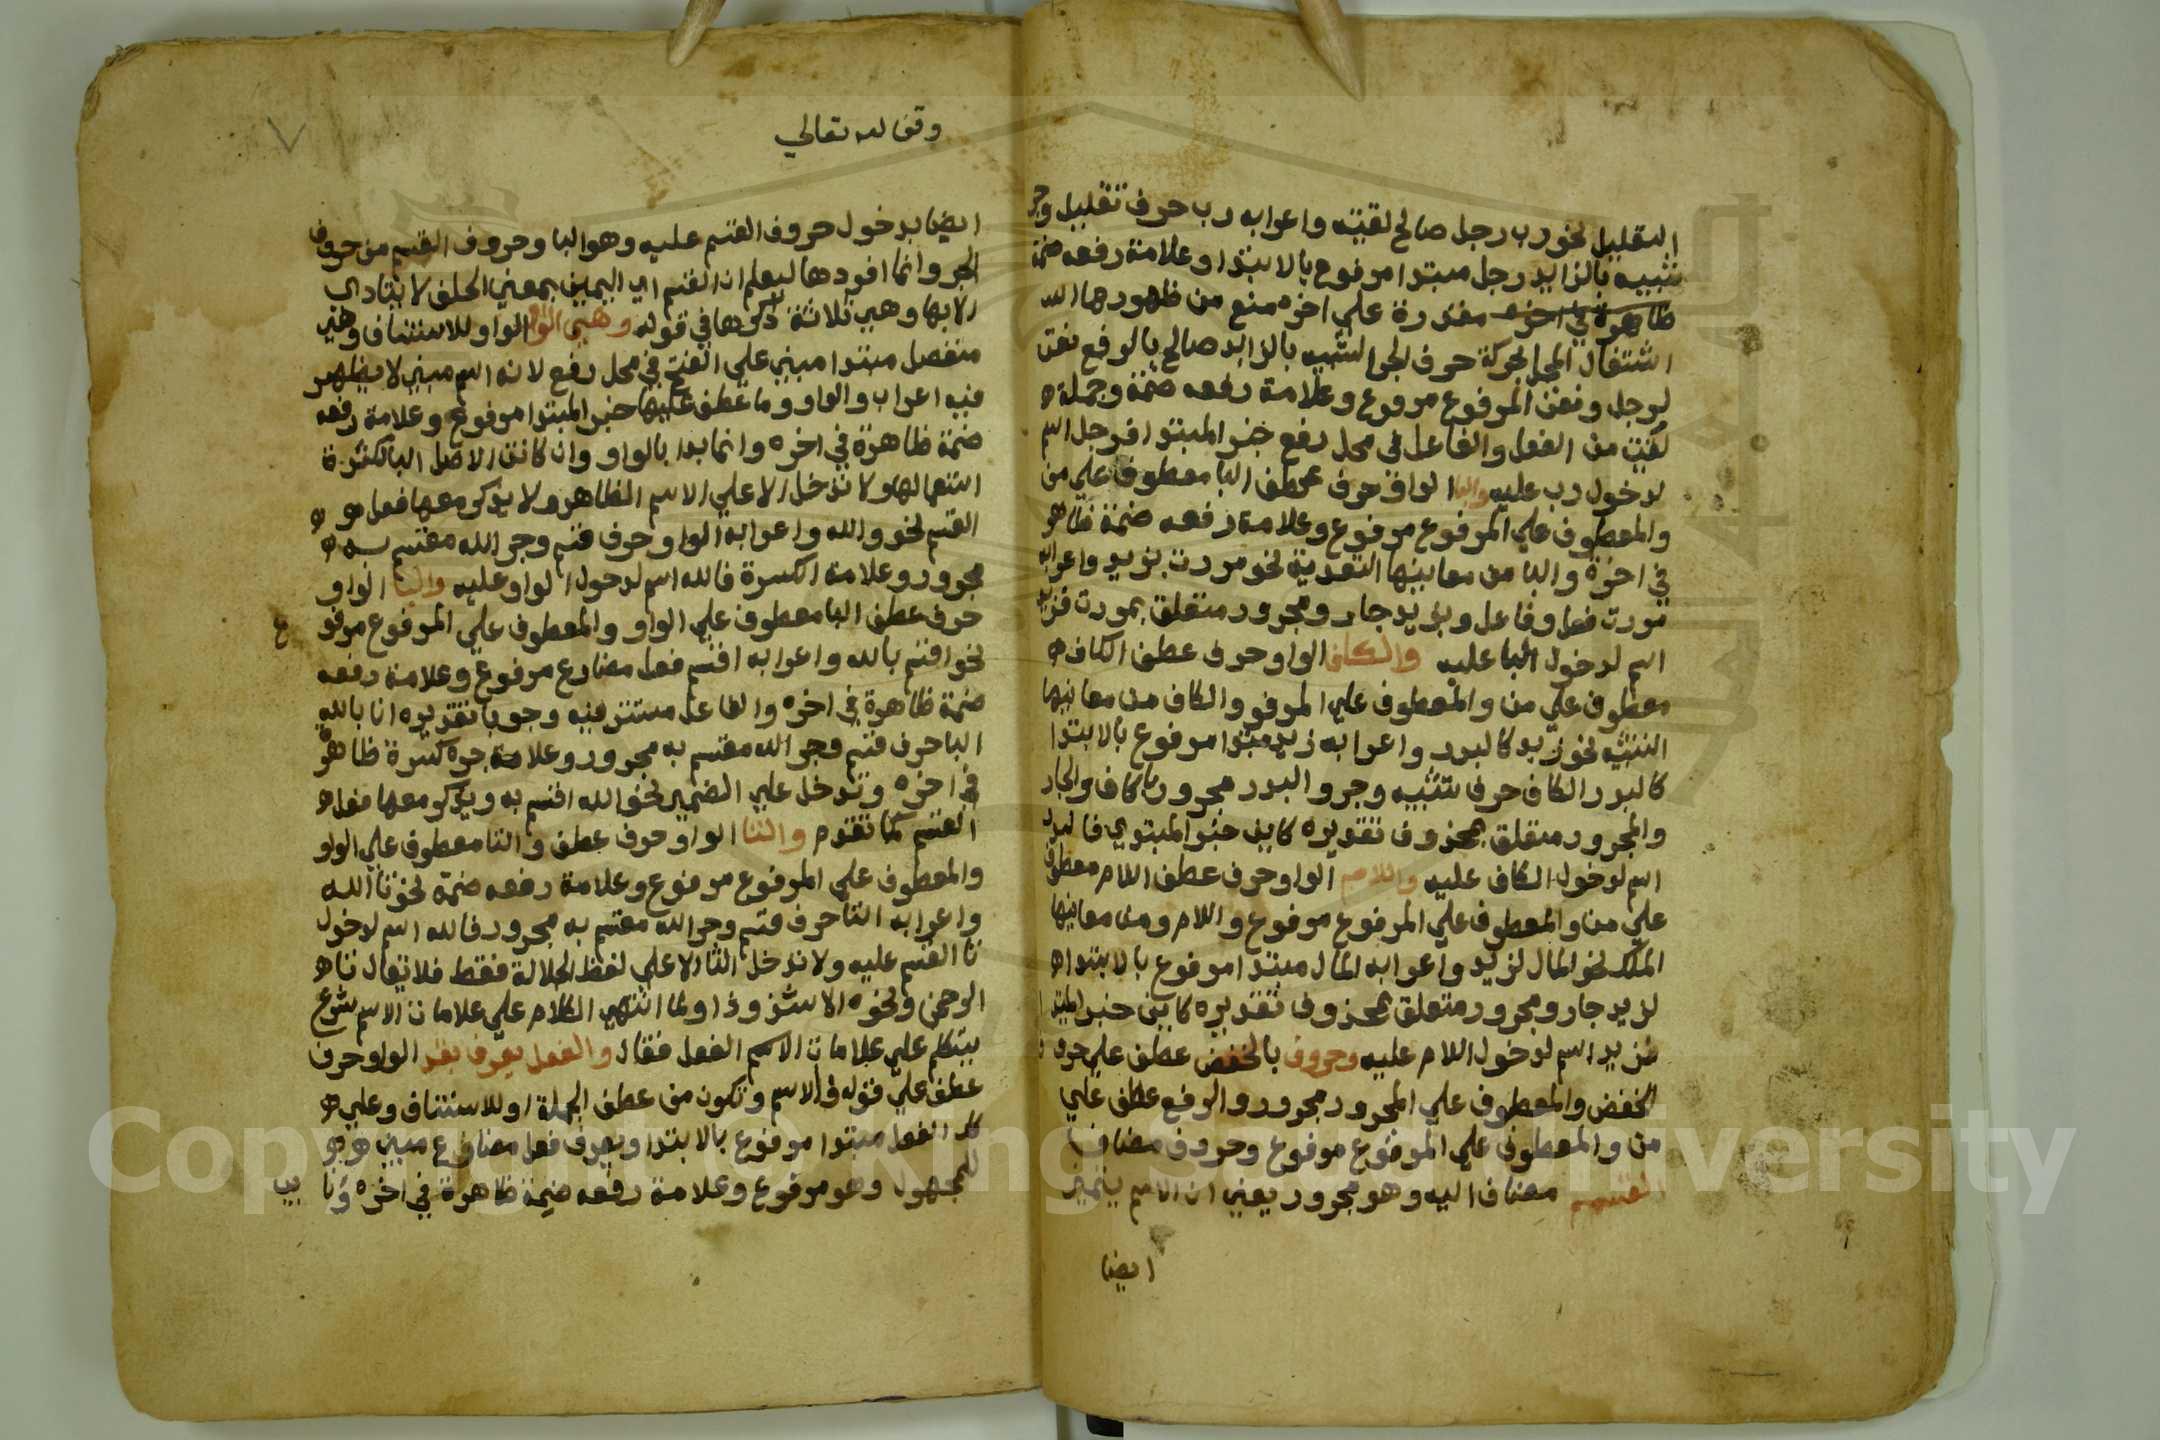 التقليل نحو رب رجل صالح لقيته واعرابه رب حرف تقليل وجر
شبيه بالزايد رجل مبتدا مرفوع بالابتدا وعلامة رفعه ضمة
ظاهرة في اخره مقدرة علي اخره منع من ظهورها
اشتغال المحل بحركة حرف الجر الشبيه بالزايد صالح بالرفع نعت
لرجل ونعت المرفوع مرفوع وعلامة رفعه ضمة وجملة
لقيت من الفعل والفاعل في محل رفع خبر المبتدا فرجل اسم
لدخول رب عليه والبا الواو حرف عطف البا معطوف علي من
والمعطوف علي المرفوع مرفوع وعلامة رفعه ضمة ظاهر
في اخرة والبا من معانيها التعدية نحو مررت بزيد واعرابه
مررت فعل وفاعل وبزيد جار ومجرور متعلق بمررت فزيد
اسم لدخول البا عليه والكاف الواو حرف عطف الكاف
معطوف علي من والمعطوف علي المرفو والكاف من معانيها
التشبيه نحو زيد كالبدر واعرابه زيد مبتدا مرفوع بالابتدا
كالبدر الكاف حرف تشبيه وجر والبدر مجرور بالكاف والجار
والمجرور متعلق بمحذوف تقديره كاين خبر المبتدي فالبدر
اسم لدخول الكاف عليه واللام الواو حرف عطف اللام معطوف
علي من والمعطوف علي المرفوع مرفوع واللام ومن معانيها
الملك نحو المال لزيد واعرابه المال مبتدا مرفوع بالابتدا
لزيد جار ومجرور متعلق بمحذوف تقديره كاين خبر المبتدا
فزيد اسم لدخول اللام عليه وحروف بالخفض عطف علي حرف
الخفض والمعطوف علي المجرور مجرور والرفع عطف علي
من والمعطوف علي المرفوع مرفوع وحروف مضاف
القسم مضاف اليه وهو مجرور يعني ان الاسم يتميز
ايضا
وقف لله تعالي
٧
ايضا بدخول حروف القسم عليه وهو البا وحروف القسم من حروف
الجر وانما افردها ليعلم ان القسم اي اليمين بمعني الحلف لا يتادي
الا بها وهي ثلاثة ذكرها في قوله وهي الواو الواو للاستيناف وهي
منفصل مبتدا مبني علي الفتح في محل رفع لانه اسم مبني لا يظهر
فيه اعراب والواو وما عطف عليها خبر المبتدا مرفوع وعلامة رفعه
ضمة ظاهرة في اخره وانما بدا بالواو وان كانت الاصل البا لكثرة
استعمالها ولا تدخل الا علي الاسم الظاهر ولا يذكر معها فعل
القسم نحو والله واعرابه الواو حرف قسم وجر الله مقسم به
مجرور وعلامة الكسرة فالله اسم لدخول الواو عليه والبا الواو
حرف عطف البا معطوف علي الواو والمعطوف علي المرفوع مرفو
ع
نحو اقسم بالله واعرابه اقسم فعل مضارع مرفوع وعلامة رفعه
ضمة ظاهرة في اخره والفاعل مستتر فيه وجوبا تقديره انا بالله
البا حرف قسم وجر الله مقسم به مجرور وعلامة جره كسرة ظاهرة
في اخره وتدخل علي الضمير نحو الله اقسم به ويذكر معها فعل
القسم كما تقدم والتا الواو حرف عطف والتا معطوف علي الواو
والمعطوف علي المرفوع مرفوع وعلامة رفعه ضمة نحو تا الله
واعرابه التا حرف قسم وجر الله مقسم به مجرور فالله اسم لدخول
تا القسم عليه ولا تدخل التا الا علي لفظ الجلالة فقط فلا يقال تا
الرحمن ونحوه الا شذوذا ولما انتهي الكلام علي علامات الاسم شرع
يتكلم علي علامات الاسم الفعل فقال والفعل يعرف بقد الواو حرف
عطف علي قوله فالاسم وتكون من عطف الجملة او للاستيناف وعلي
كل الفعل مبتدا مرفوع بالابتدا ويعرف فعل مضارع مبني
للمجهول وهو مرفوع وعلامة رفعه ضمة ظاهرة في اخره ونا
يب
Copyright © King Saud University